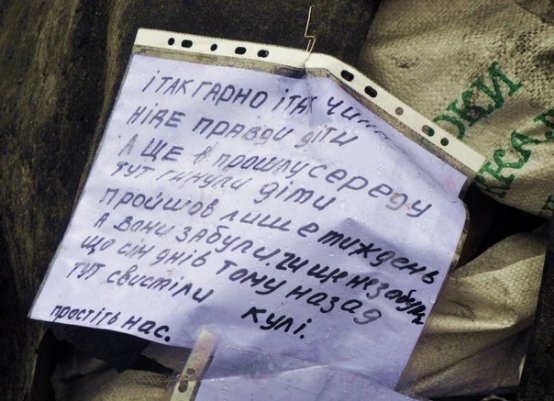 і так гарно і так чи
ніде правди діти
А ще в прошлу середу
тут гинули діти
пройшов лише тиждень
А вони забули, чи ще незабули
що сім днів тому назад
тут свистіли кулі.
простіть нас.